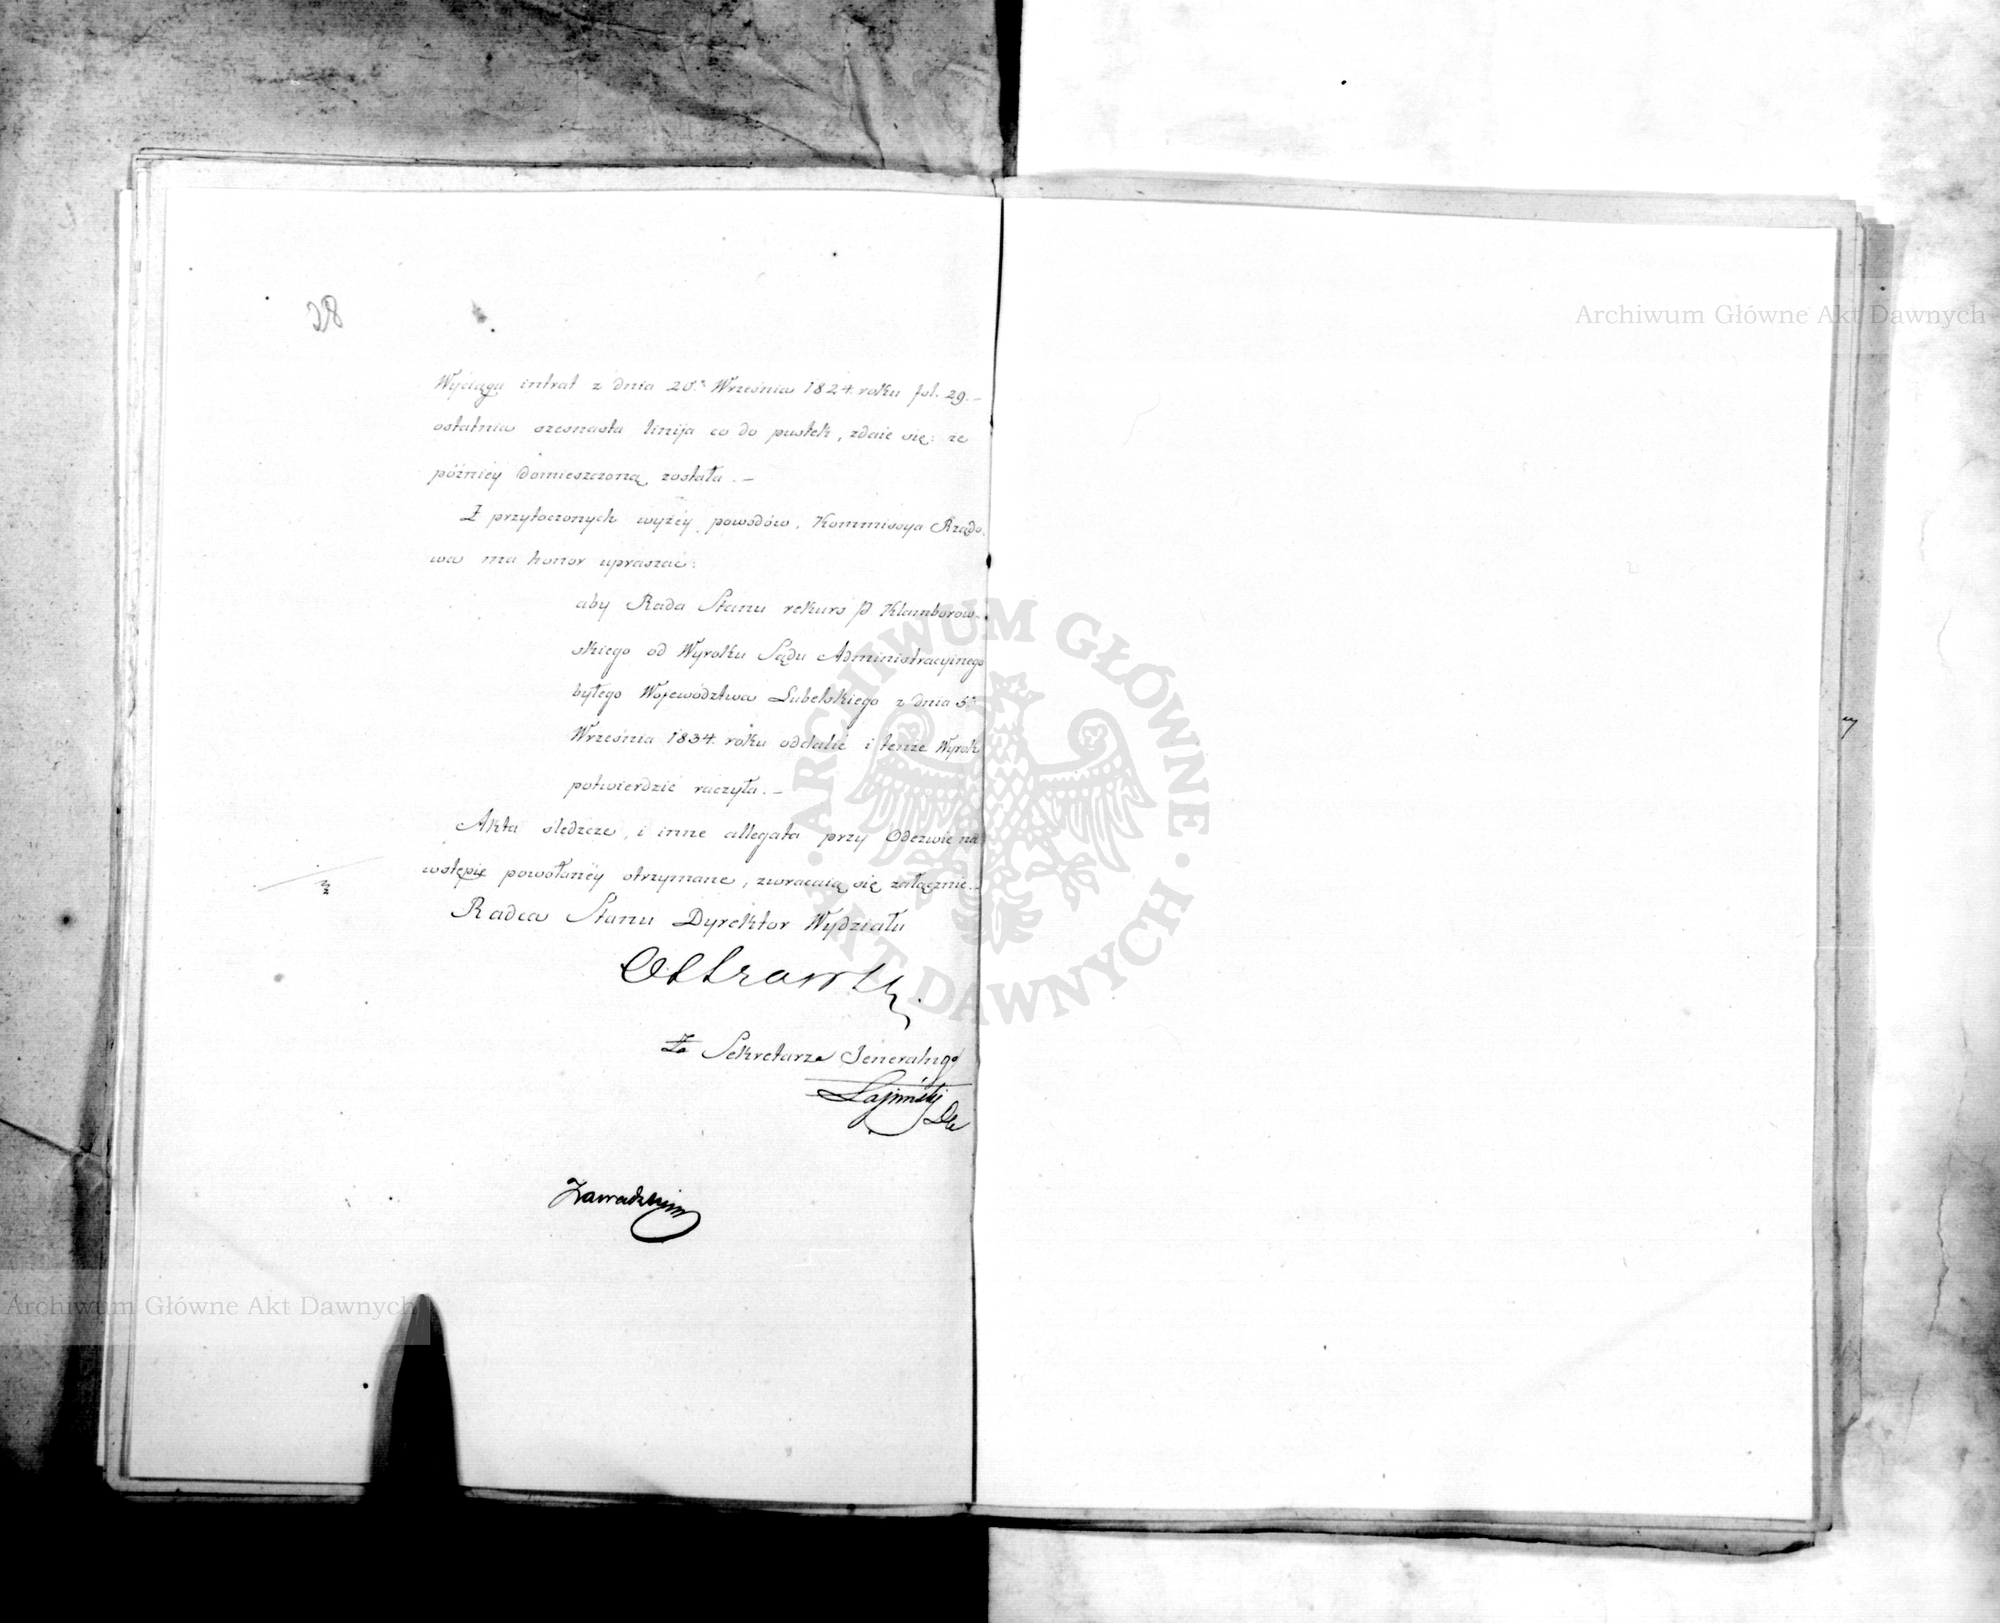 28
Wyciągu intrat z dnia 20.º Września 1824. roku fol. 29.–
ostatnia szesnasta linija co do pustek, zdaie się: że
późniéy domieszczoną została. –
Z przytoczonych wyżéy powodów, Kommissya Rządo-
wa ma honor upraszać:
aby Rada Stanu rekurs P. Klamborow-
skiego od Wyroku Sądu Administracyjnego
byłego Województwa Lubelskiego z dnia 5.º
Września 1834. roku oddalić i tenże Wyrok
potwierdzić raczyła. –
Akta śledcze, i inne allegata przy Odezwie na
wstępie powołanéy otrzymane, zwracaią się załącznie. –
Radca Stanu Dyrektor Wydziału
Za Sekretarza Jeneralnego
Archiwum Główne Akt Dawnych
Archiwum Główne Akt Dawnych
ARCHIWUM GŁÓWNE
AKT DAWNYCH